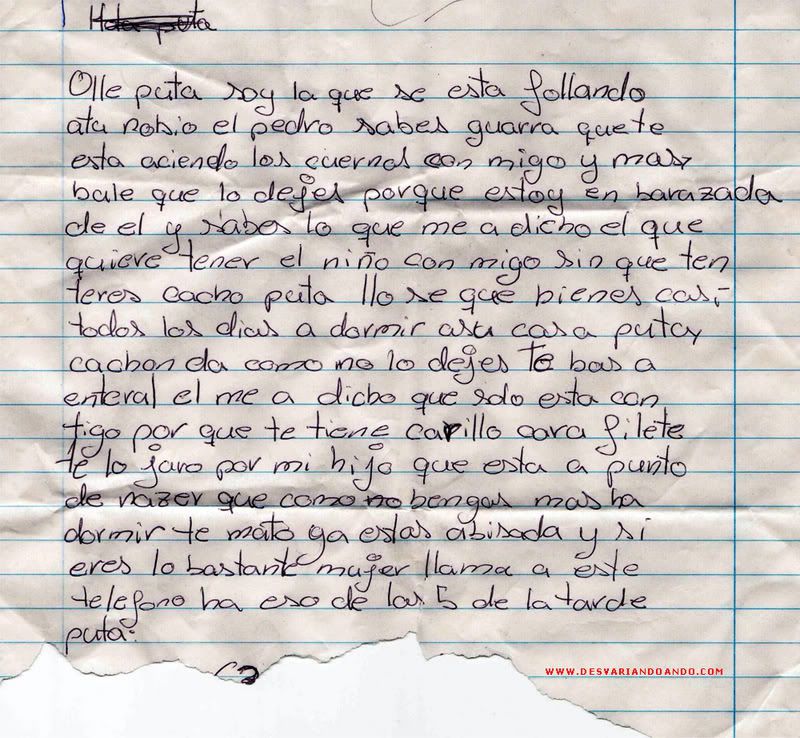 Hola puta
Olle puta soy la que se esta follando
atu nobio el pedro sabes guarra que te
esta aciendo los cuernos con migo y mas
bale que lo dejes porque estoy en barazada
de el y sabes lo que me a dicho el que
quieve tener el niño con migo sin que ten
teres cacho puta llo se que bienes casi
todos los dias a dormir asu casa puta y
cachon da como no lo dejes te bas a
enteral el me a dicho que solo esta con
tigo por que te tiene carillo cara filete
te lo juro por mi hijo que esta a punto
de nazer que como no bengas mas ha
dormir te mato ya estas abisada y si
eres lo bastante mujer llama a este
telefono ha eso de las 5 de la tarde
puta.
WWW.DESVARIANDOANDO.COM